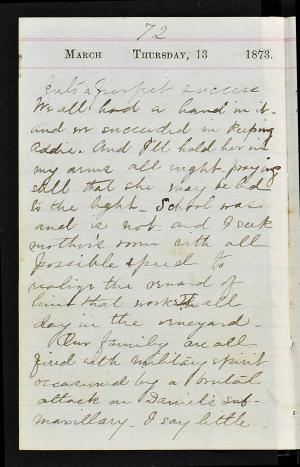 72
MARCH THURSDAY, 13 1873.
success
We all had a hand in it.
and we succeeded in keeping
Addie. And I'll hold her in
my arms all night praying
still that she may be led
to the light. School was
and is not and I seek
mother's room with all
possible speed to
realize the reward of
him that worketh all
day in the vineyard.
Our family are all
fired with military spirit
occasioned by a brutal
attack on Daniel's sub-
maxillary. I say little